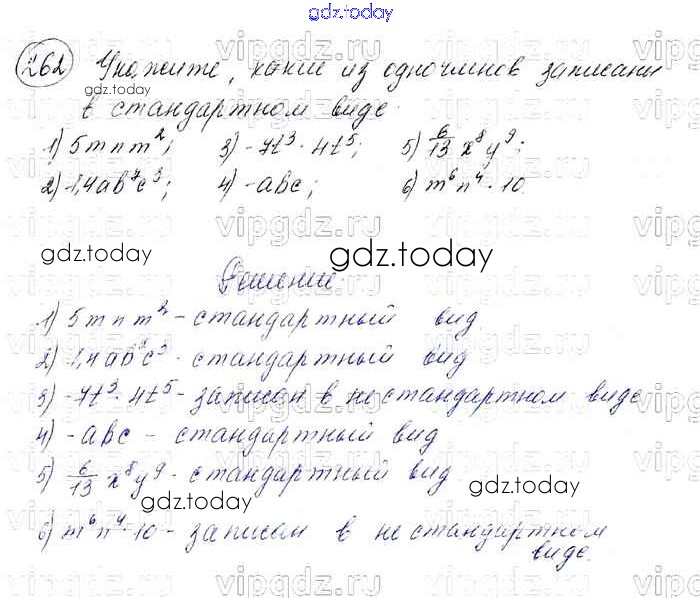 gdz.today
262 Укажите, какие из одночленов записаны
в стандартном виде.
1) 5mnm²; 3) -7t³ · 4t⁵; 5) 6/13 x⁸y⁹;
2) -1,4ab⁷c³; 4) -abc; 6) m⁶n⁴ · 10.
gdz.today
gdz.today
gdz.today
Решение.
1) 5mnm² - стандартный вид
2) -1,4ab⁷c³ - стандартный вид
3) -7t³ · 4t⁵ - записан в не стандартном виде
4) -abc - стандартный вид
5) 6/13 x⁸y⁹ - стандартный вид
gdz.today
gdz.today
6) m⁶n⁴ · 10 - записан в не стандартном
виде.
vipgdz.ru